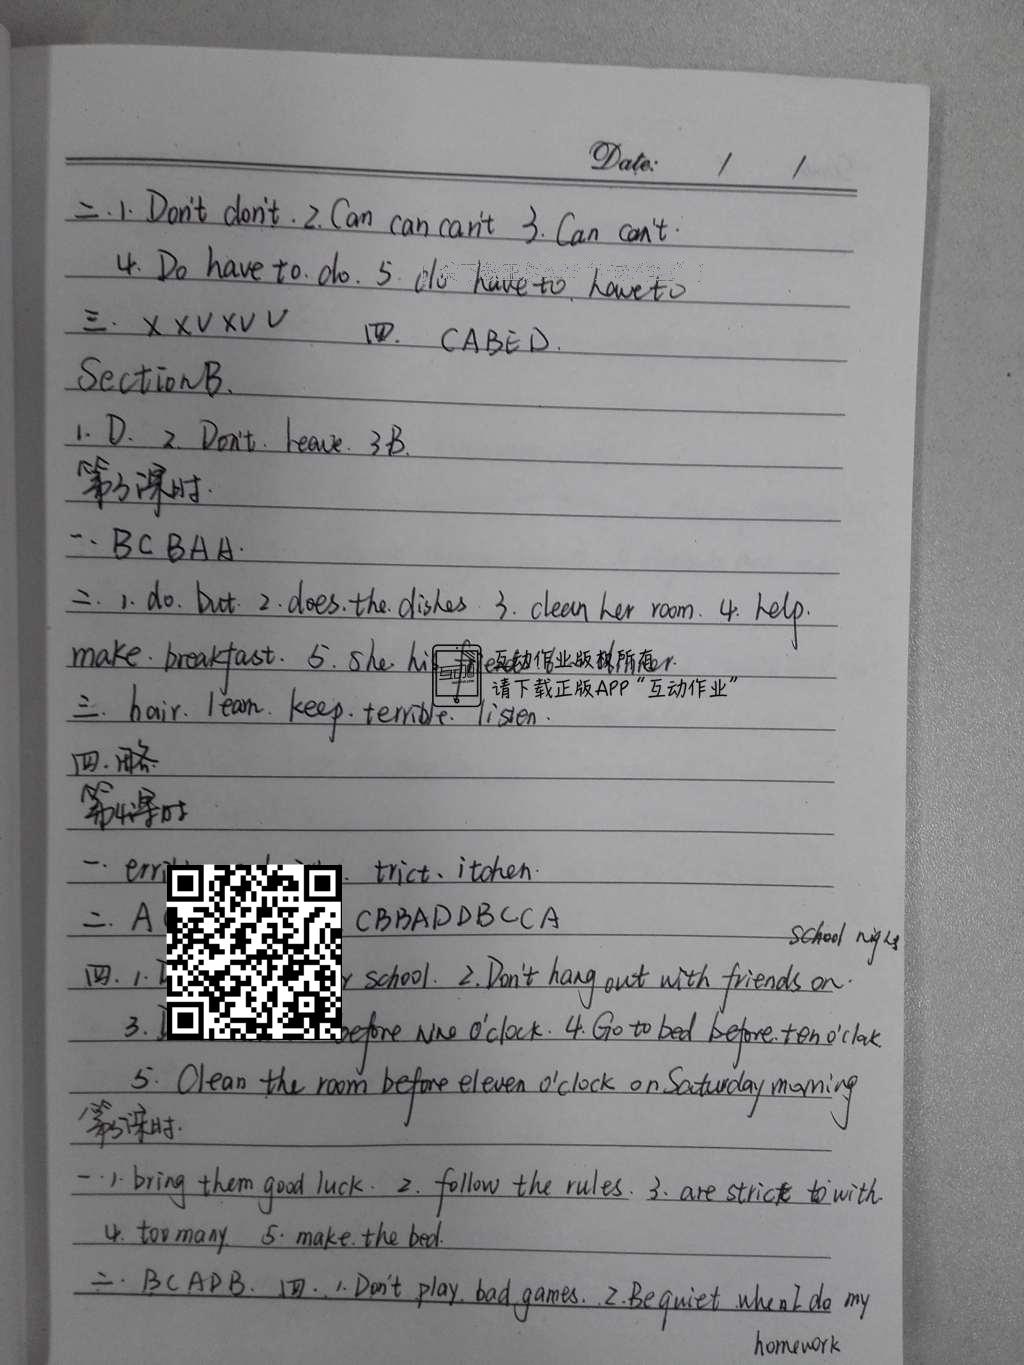 Date: / /
二.1. Don't don't. 2. Can can can't 3. Can can't.
4. Do have to. do. 5. do have to. have to
三. X X V X V V 四. CABED.
Section B.
1. D. 2. Don't. leave. 3 B.
第3课时.
一. BCBAA.
二. 1. do. but. 2. does. the. dishes. 3. clean her room. 4. help.
make. breakfast. 5. she. his
互动作业版权所有
请下载正版APP“互动作业”
三. hair. learn. keep. terrible. listen.
四. 略.
第4课时
一. trict、itchen.
二. A CBBADDBCCA
school nights
四. 1. school. 2. Don't hang out with friends on.
3. before nine o'clock. 4. Go to bed before. ten o'clock
5. Clean the room before eleven o'clock on Saturday morning
第5课时.
一. 1. bring them good luck. 2. follow the rules. 3. are strict with.
4. too many 5. make. the bed.
二. BCADB. 四. 1. Don't play bad games. 2. Be quiet when I do my
homework